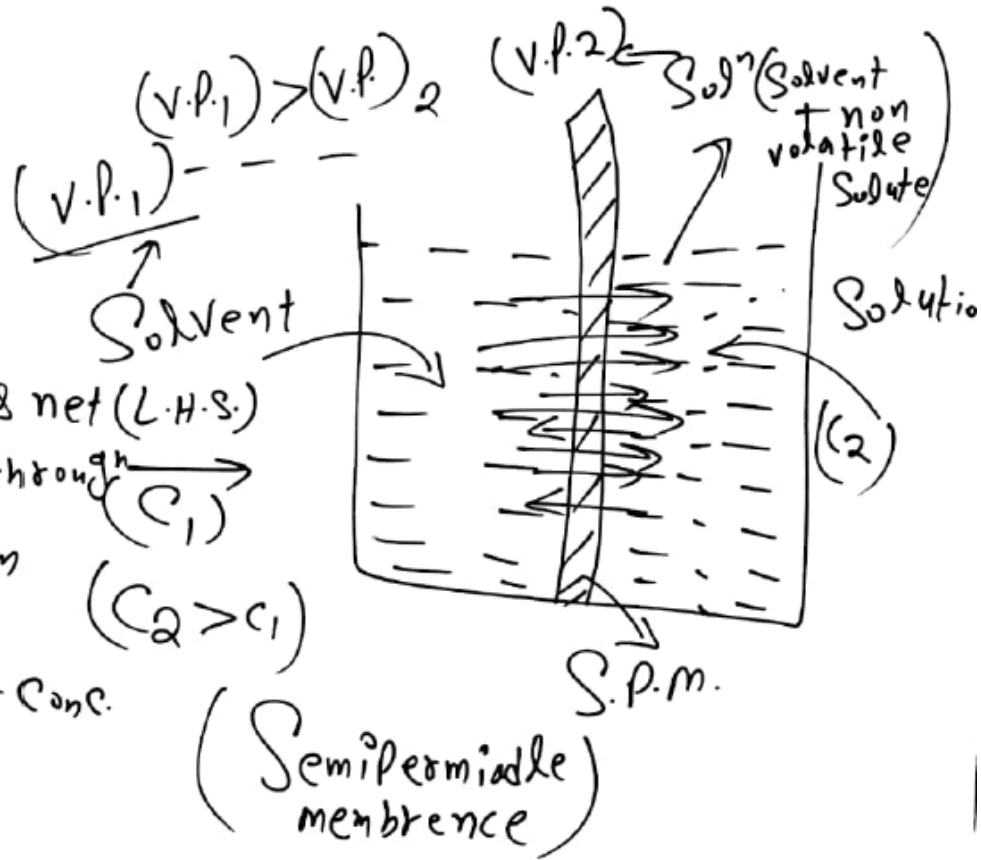 (V.P.1) > (V.P.)2
(V.P.2)
Solⁿ (Solvent
+ non
volatile
Solute)
(V.P.1)
Solvent
Solutio
net (L.H.S.)
hrough
(C1)
(C2)
(C2 > C1)
Conc.
S.P.M.
(Semipermiadle
membrence)